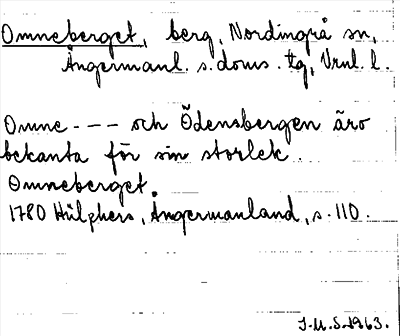 Omneberget, berg, Nordingrå sn,
Ångermanl. s. doms. tg, Vnl. l.
Omne - - - och Ödensbergen äro
bekanta för sin storlek.
Omneberget.
1780 Hülphers, Ångermanland, s. 110.
J.M.S. 1963.